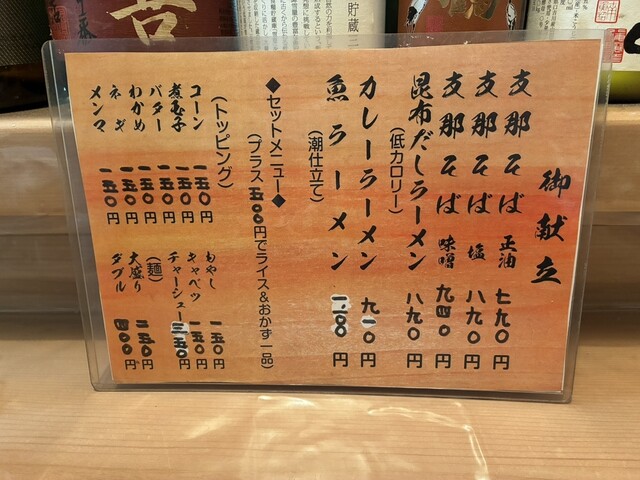 御献立
支那そば 正油 七九〇円
支那そば 塩 八九〇円
支那そば 味噌 九四〇円
昆布だしラーメン 八九〇円
(低カロリー)
カレーラーメン 九一〇円
魚ラーメン 一、一〇〇円
(潮仕立て)
◆セットメニュー◆
(プラス五〇〇円でライス&おかず一品)
(トッピング)
コーン 一五〇円
煮玉子 一五〇円
バター 一五〇円
わかめ 一五〇円
ネギ 一五〇円
メンマ 一五〇円
もやし 一五〇円
キャベツ 一五〇円
チャーシュー 三五〇円
(麺)
大盛り 二五〇円
ダブル 四〇〇円
貯蔵